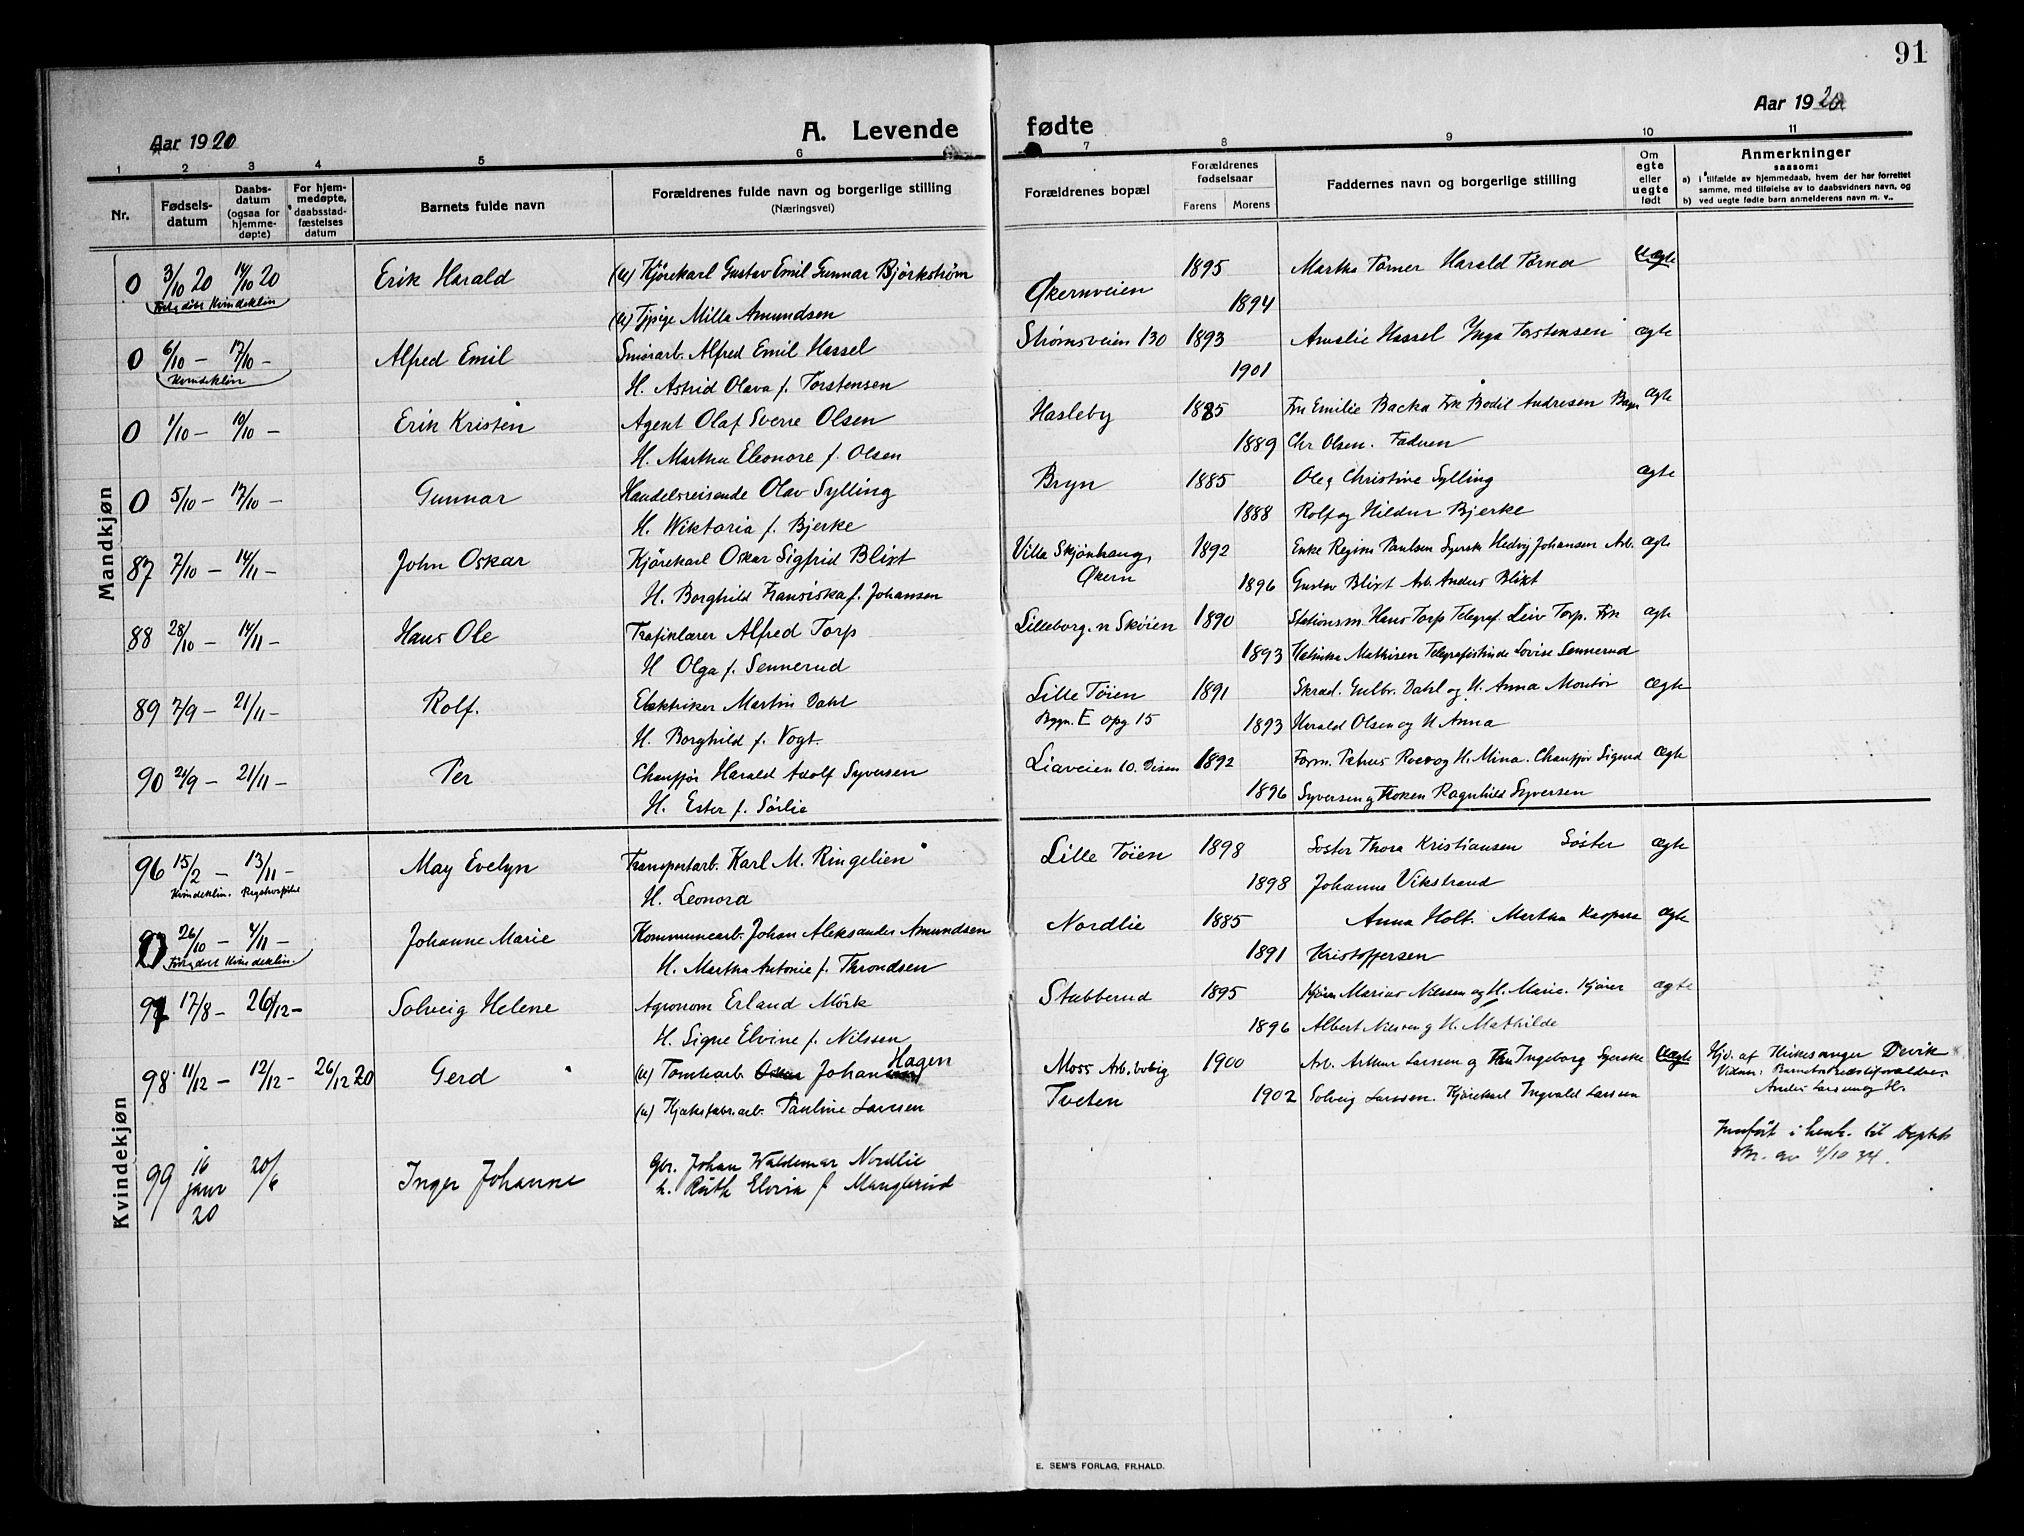 91
Aar 1920
A. Levende fødte
Aar 1920
1 2 3 4 5 6 7 8 9 10 11
Nr.
Fødsels-
datum
Daabs-
datum
(ogsaa for
hjemme-
døpte)
For hjem-
medøpte,
daabsstad-
fæstelses
datum
Barnets fulde navn
Forældrenes fulde navn og borgerlige stilling
(Næringsvei)
Forældrenes bopæl
Forældrenes
fødselsaar
Farens Morens
Faddernes navn og borgerlige stilling
Om
egte
eller
uegte
født
Anmerkninger
saasom:
a) i tilfælde av hjemmedaab, hvem der har forrettet
samme, med tilføielse av to daabsvidners navn, og
b) ved uegte fødte barn anmelderens navn m. v..
Mandkjøn
0 3/10 20 14/10 20 Erik Harald (u) Kjørekarl Gustav Emil Gunnar Bjørkstrøm 1895 Martha Törner Harald Törna uegte
døbt Kvindeklin Økernveien
(u) Tjpige Milla Amundsen 1894
0 6/10 – 17/10 – Alfred Emil Smörarb. Alfred Emil Hassel Strømsveien 130 1893 Amalie Hassel Inga Torstensen ægte
Kvindeklin H. Astrid Olava f. Torstensen 1901
0 1/10 – 10/10 – Erik Kristen Agent Olaf Sverre Olsen Hasleby 1885 Fru Emilie Backa Frk Bodil Andresen ægte
H. Martha Eleonore f. Olsen 1889 Chr Olsen. Faderen
0 5/10 – 17/10 – Gunnar Handelsreisende Olav Sylling Bryn 1885 Ole og Christine Sylling ægte
H. Wiktoria f. Bjerke 1888 Rolf og Hildur Bjerke
87 7/10 – 14/11 – John Oskar Kjörekarl Oskar Sigfrid Blixt Villa Skjønhaug, 1892 Enke Regine Paulsen Syersk Hedvig Johansen Arb. ægte
Økern
H. Borghild Fransiska f. Johansen 1896 Gustav Blixt Arb. Anders Blixt
88 28/10 – 14/11 – Hans Ole Trafiklærer Alfred Torp Lilleborg. n Skøien 1890 Stationsm. Hans Torp Telegraf. Leiv Torp. Frk ægte
H Olga f. Sennerud 1893 Mathisen Telegrafistinde Lovise Sennerud
89 7/9 – 21/11 – Rolf. Elektriker Martin Dahl Lille Tøien 1891 Skræd. Gulbr. Dahl og H. Anna ægte
H. Borghild f. Vogt. Bygn. E opg 15 1893 Harald Olsen og H Anna
90 21/9 – 21/11 – Per Chauffør Harald Adolf Syversen Liaveien 10. Disen 1892 Form. Petrus Roer og H. Mina. Chauffør Sigurd ægte
H. Ester f. Sørlie 1896 Syversen og Frøken Ragnhild Syversen
Kvindekjøn
96 15/2 – 13/11 – May Evelyn Transportarb. Karl M. Ringelien Lille Tøien 1898 Søster Thora Kristiansen Søster ægte
Kvindeklin. Rigshospital H. Leonora 1898 Johanne Vikstrand
0 26/10 – 4/11 – Johanne Marie Kommunearb. Johan Aleksander Amundsen Nordlie 1885 Anna Holt. Martha Kaspara ægte
døbt Kvindeklin. H. Martha Antonie f. Throndsen 1891 Kristoffersen
97 17/8 – 26/12 – Solveig Helene Agronom Erland Mörk Stubberud 1895 Kjører Marius Nilssen og H. Marie. Kjører ægte
H. Signe Elvine f. Nilssen 1896 Albert Nilsen og H. Mathilde
98 11/12 – 12/12 – 26/12 20 Gerd (u) Tomtearb. Johan Hagen Moss Arb.bolig 1900 Arb. Arthur Larssen og Ingeborg Syerske uægte Hj.d. af Kirkesanger Devik
Vidner: Barnets Bedsteforældre
Anders Larssen og H.
(u) Kjæksfabr.arb. Pauline Larssen Tveten 1902 Solveig Larssen. Kjørekarl Ingvald Larssen
99 16 janr 20 20/6 Inger Johanne Gbr. Johan Waldemar Nordlie
h. Ruth Elvira f Manglerud
Innført i henh. til Deptets
skr. av 4/10 34.
E. SEM'S FORLAG, FR.HALD.